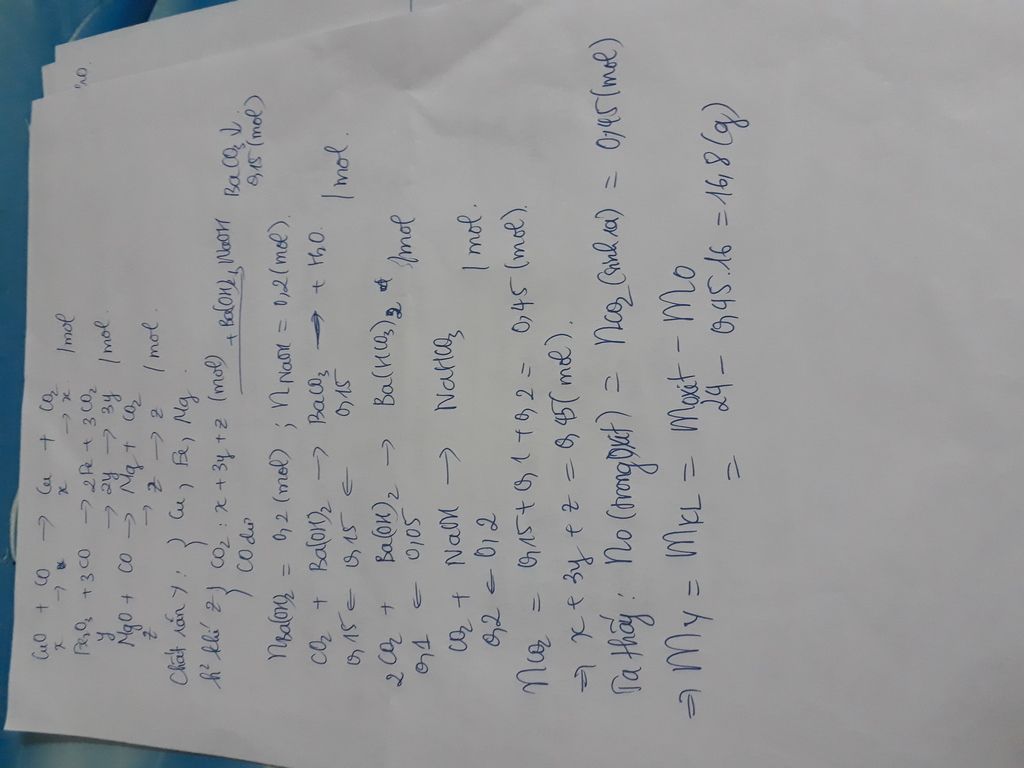 CuO + CO → Cu + CO₂
x → x x → x /mol
Fe₂O₃ + 3CO → 2Fe + 3CO₂
y → 2y → 3y /mol
MgO + CO → Mg + CO₂
z → z → z /mol.
Chất rắn Y: } Cu, Fe, Mg.
h² khí Z } CO₂: x + 3y + z (mol) + Ba(OH)₂, NaOH BaCO₃↓
CO dư 0,15 (mol)
nBa(OH)₂ = 0,2 (mol) ; nNaOH = 0,2 (mol).
CO₂ + Ba(OH)₂ → BaCO₃ → + H₂O.
0,15 ← 0,15 ← 0,15 /mol.
2CO₂ + Ba(OH)₂ → Ba(HCO₃)₂
0,1 ← 0,05 /mol
CO₂ + NaOH → NaHCO₃
0,2 ← 0,2 /mol.
nCO₂ = 0,15 + 0,1 + 0,2 = 0,45 (mol).
⇒ x + 3y + z = 0,45 (mol).
Ta thấy: nO (trong Oxit) = nCO₂ (sinh ra) = 0,45 (mol)
⇒ mY = mKL = moxit - mO
= 24 - 0,45.16 = 16,8 (g)